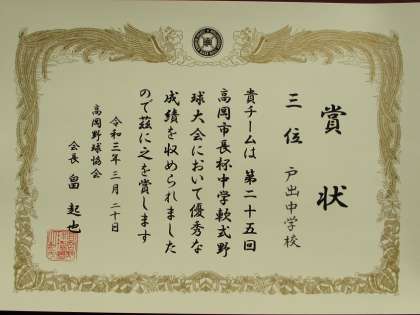 賞状
三位 戸出中学校
貴チームは第二十五回
高岡市長杯中学軟式野
球大会において優秀な
成績を収められました
ので茲に之を賞します
令和三年三月二十日
高岡野球協会
会長 畠起也